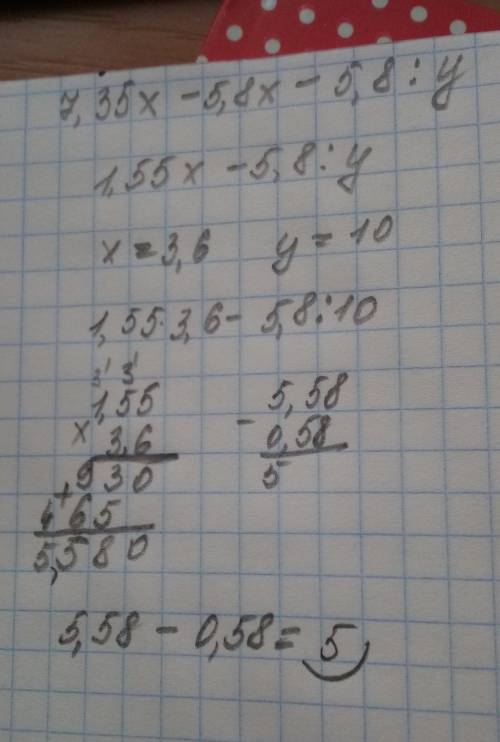 7,35x - 5,8x - 5,8 : y
1,55x - 5,8 : y
x = 3,6 y = 10
1,55 · 3,6 - 5,8 : 10
3' 3'
1,55
x 3,6
930
+ 465
5,580
- 5,58
0,58
5
5,58 - 0,58 = 5